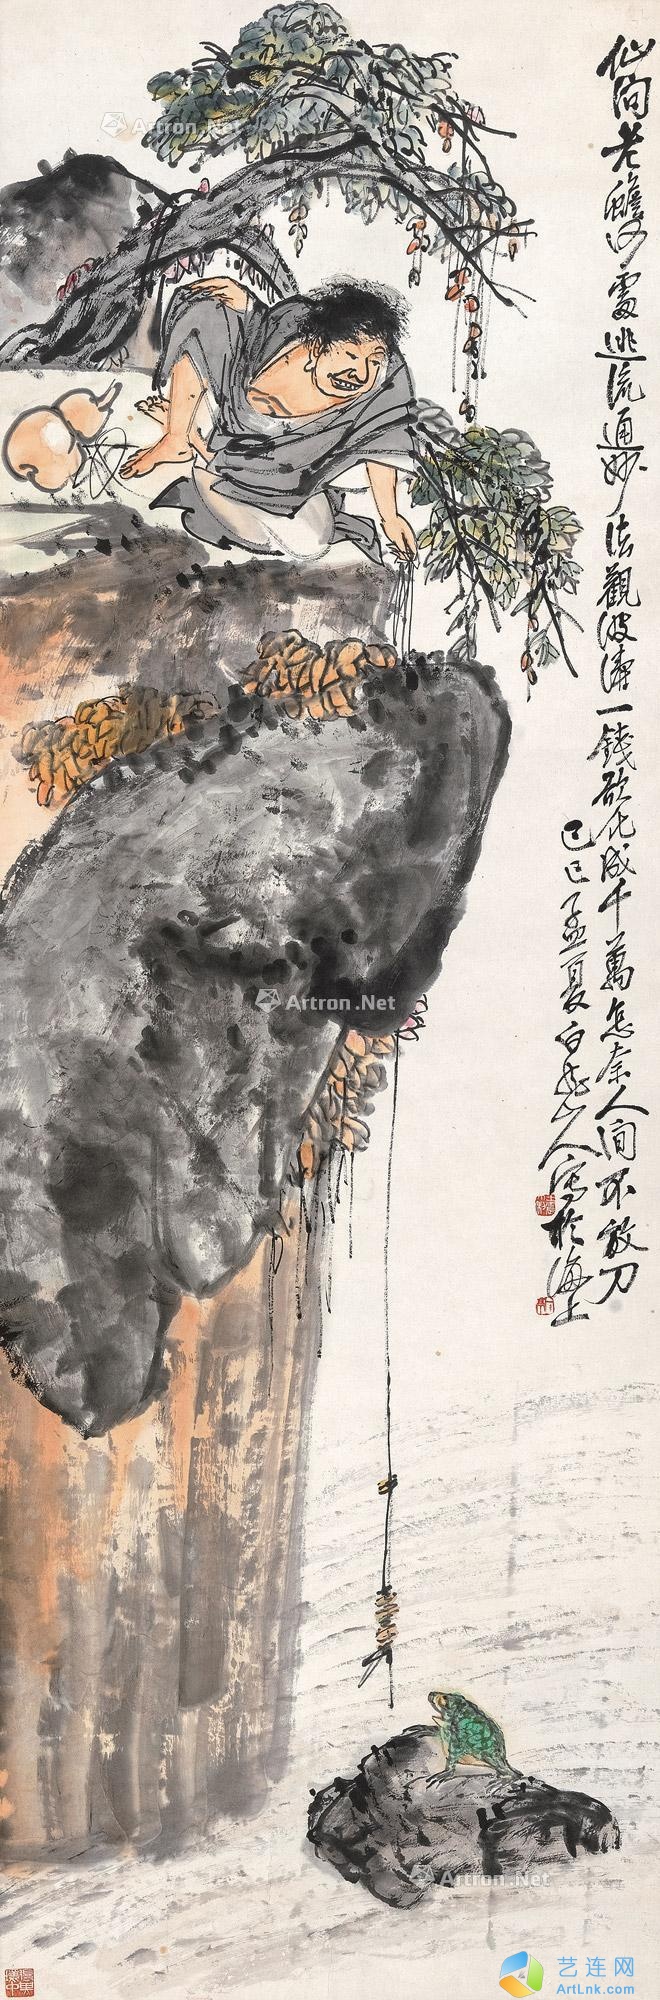 仙向老蟾何處逃流通妙法觀波濤一錢欲化成千萬怎奈人間不敌刀
己巳孟夏白龍山人寫於海上
Artron.Net
Artron.Net
Artron.Net
Artron.Net
艺连网
ArtLink.com